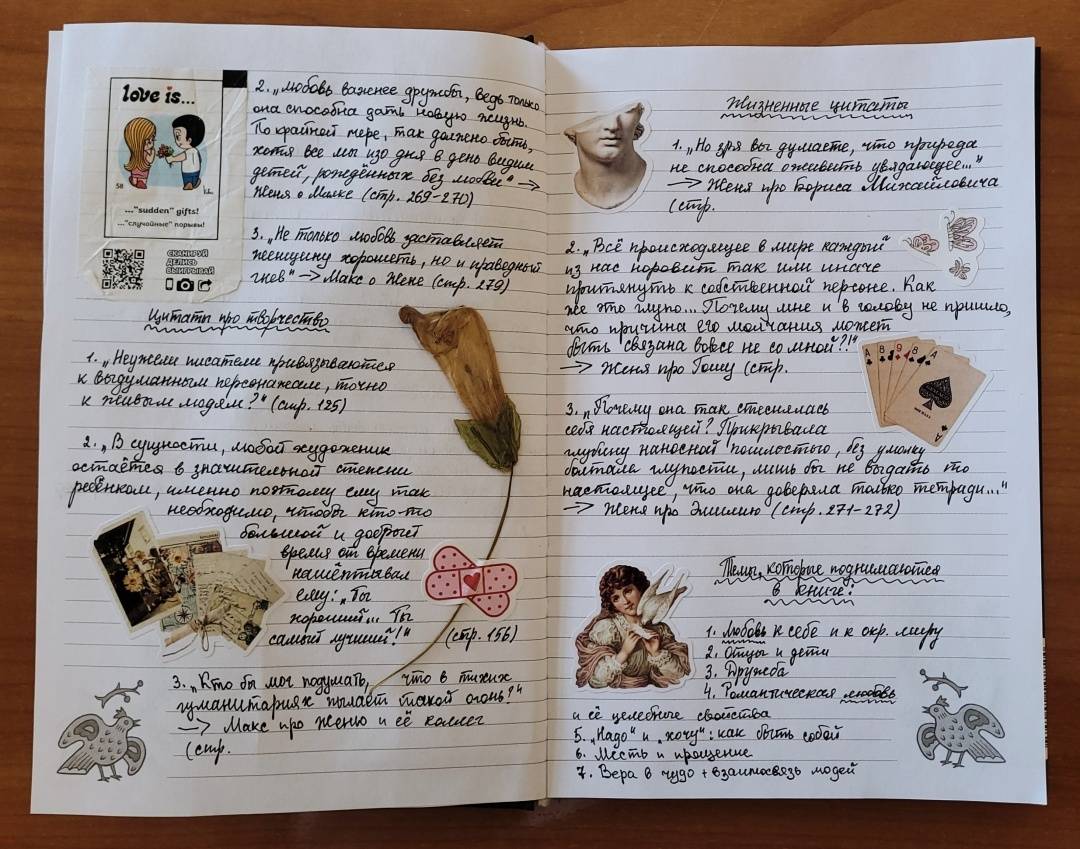 love is...
58
..."sudden" gifts!
..."случайные" порывы!
СКАНИРУЙ
ДЕЛИСЬ
ВЫИГРЫВАЙ
2. „Любовь важнее дружбы, ведь только
она способна дать новую жизнь.
По крайней мере, так должно быть,
хотя все мы изо дня в день видим
детей, рождённых без любви" →
Женя о Малке (стр. 269-270)
3. „Не только любовь заставляет
женщину хорошеть, но и праведный
гнев" → Макс о Жене (стр. 279)
Цитаты про творчество
1. „Неужели писатели привязываются
к выдуманным персонажам, точно
к живым людям?" (стр. 125)
2. „В сущности, любой художник
остаётся в значительной степени
ребёнком, именно поэтому ему так
необходимо, чтобы кто-то
большой и добрый
время от времени
нашёптывал
ему: „Ты
хороший... Ты
самый лучший!" (стр. 156)
3. „Кто бы мог подумать, что в тихих
гуманитариях пылает такой огонь?"
→ Макс про Женю и её коллег
(стр.
Жизненные цитаты
1. „Но зря вы думаете, что природа
не способна оживить увядающее..."
→ Женя про Бориса Михайловича
(стр.
2. „Всё происходящее в мире каждый
из нас норовит так или иначе
притянуть к собственной персоне. Как
же это глупо... Почему мне и в голову не пришло,
что причина его молчания может
быть связана вовсе не со мной?!"
→ Женя про Гошу (стр.
A 8 9 8 A
A
3. „Почему она так стеснялась
себя настоящей? Прикрывала
глубину наносной пошлостью, без умолку
болтала глупости, лишь бы не выдать то
настоящее, что она доверяла только тетради..."
→ Женя про Эмилию (стр. 271-272)
Темы, которые поднимаются
в книге:
1. Любовь к себе и к окр. миру
2. Отцы и дети
3. Дружба
4. Романтическая любовь
и её целебные свойства
5. „Надо" и „хочу": как быть собой
6. Месть и прощение
7. Вера в чудо + взаимосвязь людей